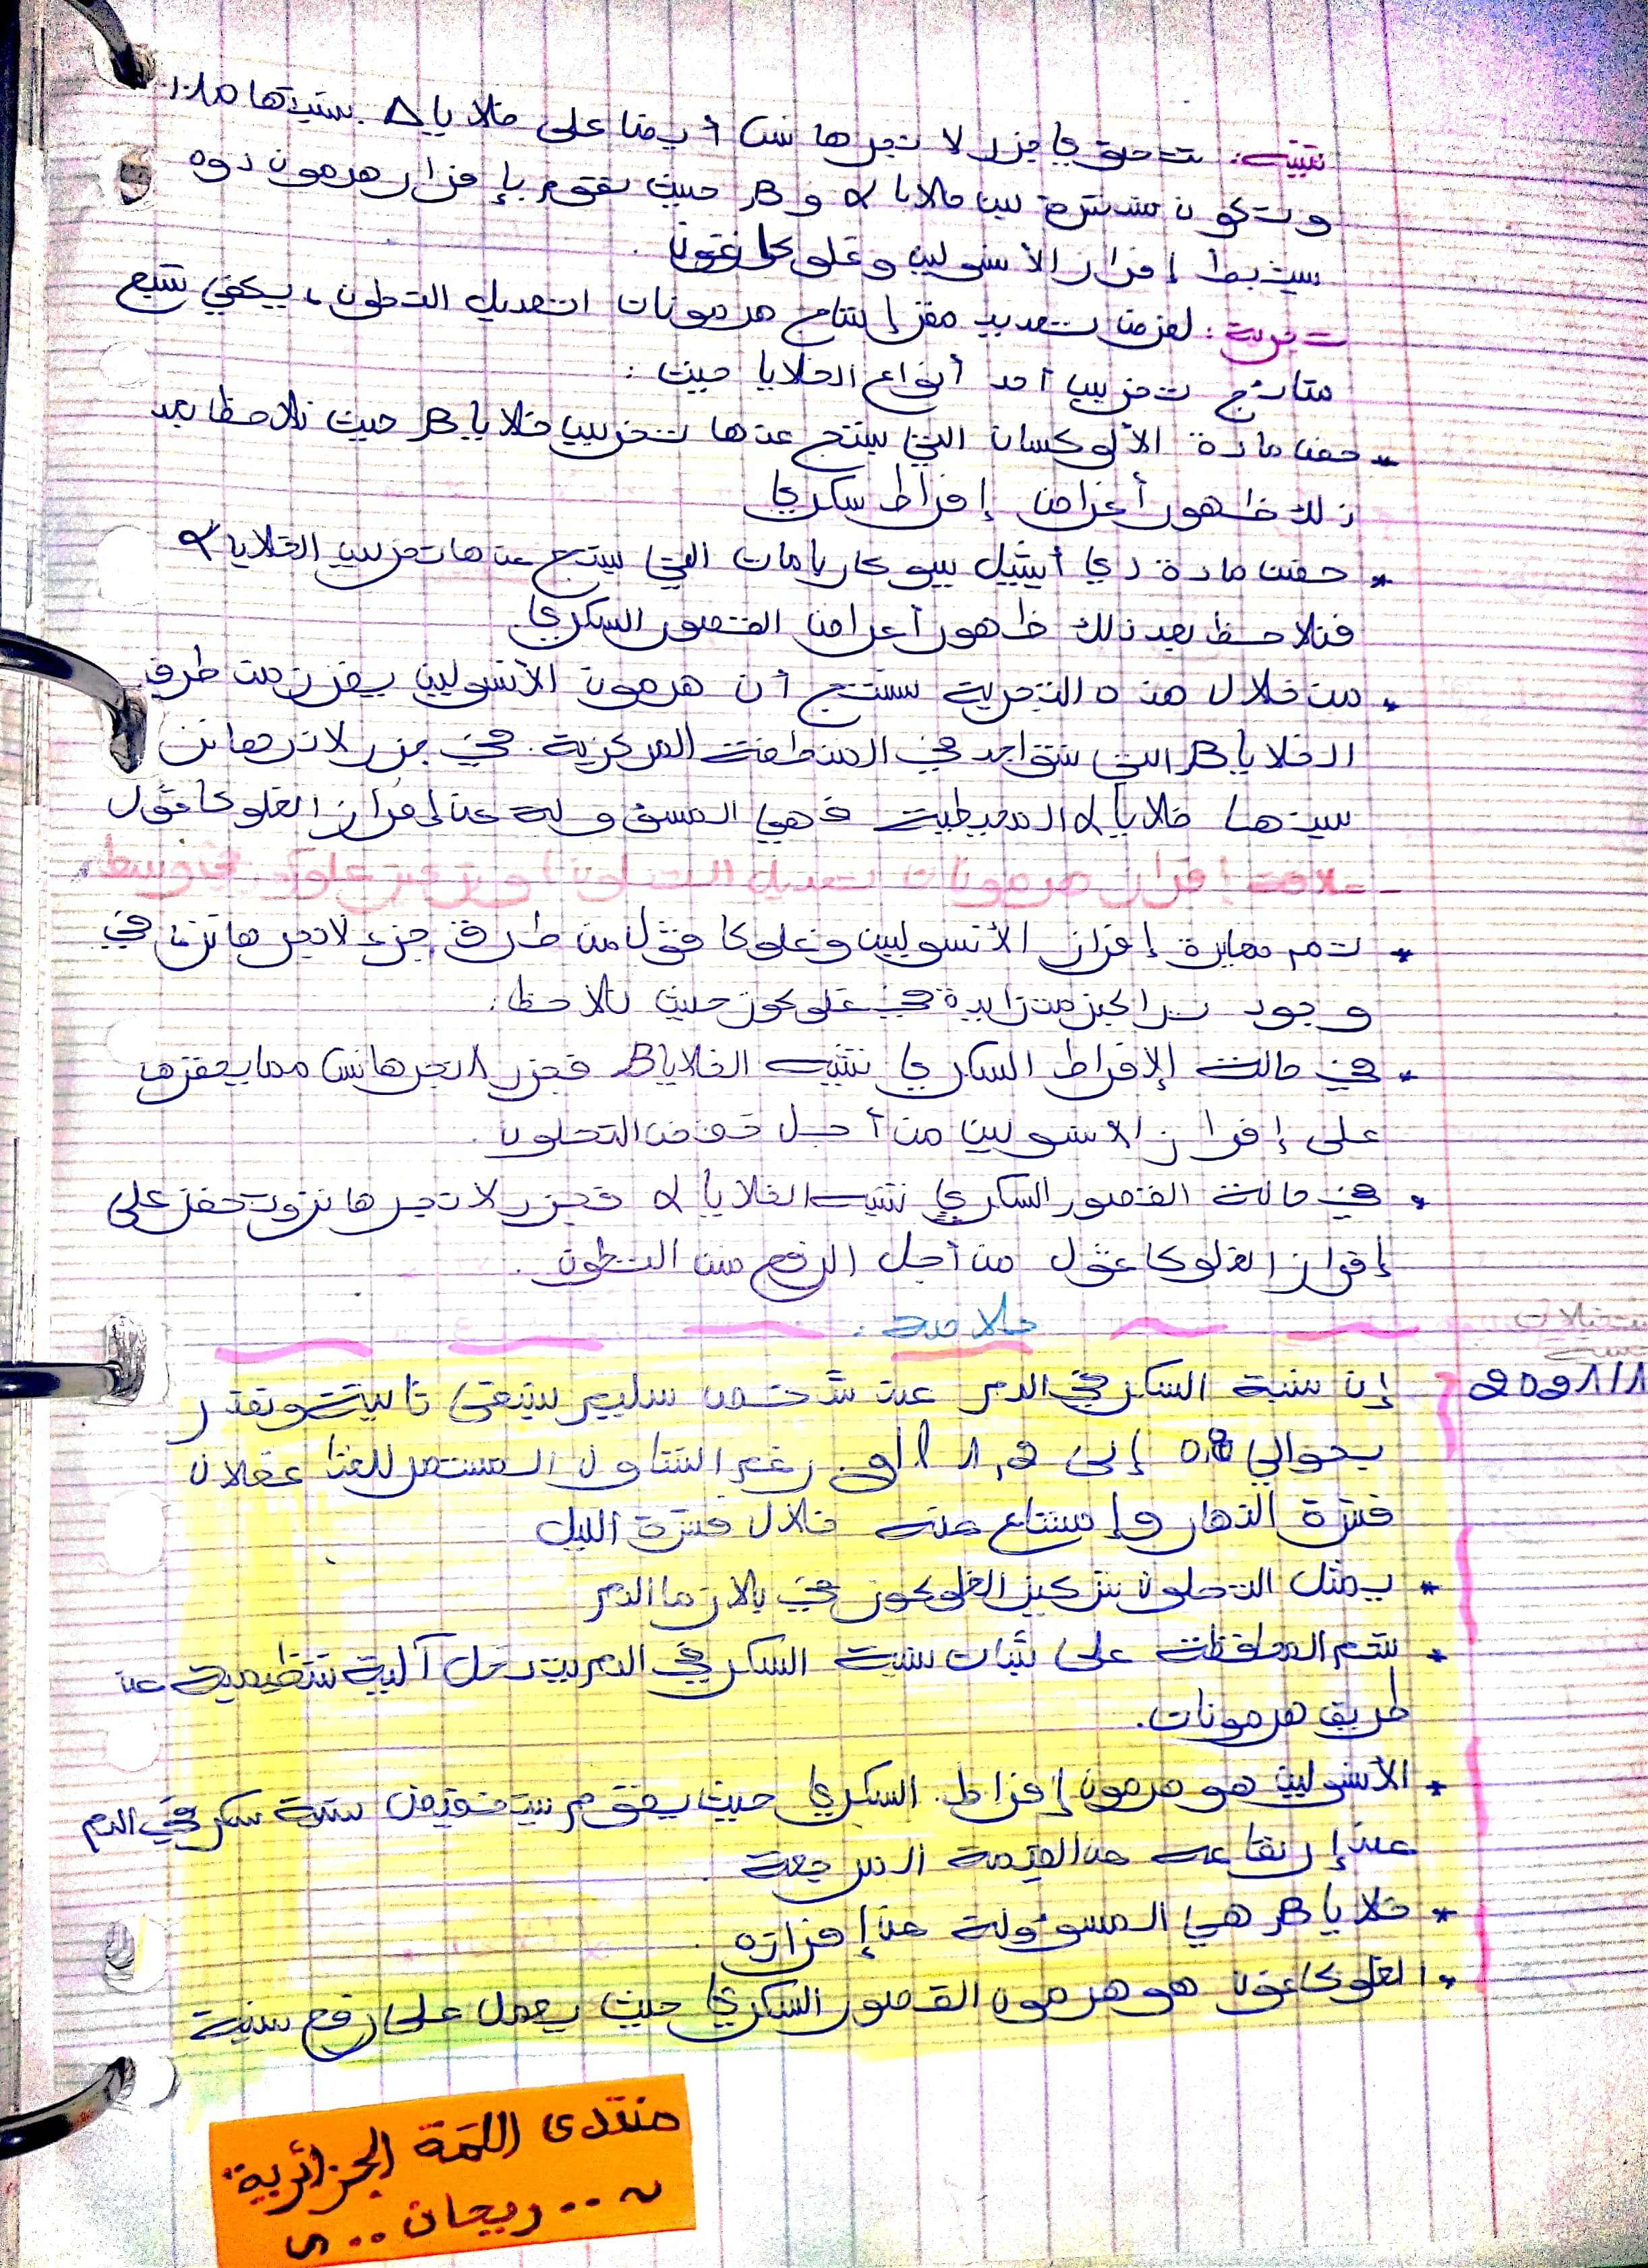 تنبيه: تحتوي جزر لانجرهانس أيضا على خلايا Δ بنسبتها 10%
وتكون منتشرة بين خلايا α و B حيث تقوم بإفراز هرمون دوره
يثبط إفراز الأنسولين وغلوكاغون.
تجربة: لغرض تحديد مقر إنتاج هرمونات تعديل التحلون، يكفي تتبع
نتائج تخريب أحد أنواع الخلايا حيث:
- حقن مادة الألوكسان التي ينتج عنها تخريب خلايا B حيث نلاحظ بعد
ذلك ظهور أعراض إفراط سكري
* حقن مادة دي أيثيل بيوكاربامات التي ينتج عنها تخريب الخلايا α
فنلاحظ بعد ذلك ظهور أعراض القصور السكري.
* من خلال هذه التجربة نستنتج أن هرمون الأنسولين يفرز من طرف
الخلايا B التي تتواجد في المنطقة المركزية في جزر لانرهانز
بينها خلايا α المحيطية فهي المسؤولة عن إفراز الغلوكاغول
علاقة إفراز هرمونات تعديل التحلون أو تركيز غلوكوز في وسط
* تم معايرة إفراز الأنسولين وغلوكاغول من طرف جزء لانجرهانز في
وجود تراكيز متزايدة في غلوكوز حيث نلاحظ:
* في حالة الإفراط السكري تنبه الخلايا B فجزر لانجرهانس مما يحفزها
على إفراز الانسولين من أجل خفض التحلون.
* في حالة القصور السكري تنبه الخلايا α فجزر لانجرهانز وتحفز على
إفراز الغلوكاغول من أجل الرفع من التحلون.
خلاصة:
2021/1/1
إن نسبة السكر في الدم عند شخص سليم تبقى ثابتة وتقدر
بحوالي 0,8 إلى 1,2 رغم التناول المستمر للغذاء خلال
فترة النهار وإمتناع عنه خلال فترة الليل
* يمثل التحلون تركيز الغلوكوز في بلازما الدم
* تتم المحافظة على ثبات نسبة السكر في الدم بتدخل آلية تنظيمية عن
طريق هرمونات.
* الأنسولين هو هرمون إفراط السكري حيث يقوم بتخفيض نسبة سكر في الدم
عند إرتفاعه عن القيمة المرجعية.
* خلايا B هي المسؤولة عن إفرازه.
* الغلوكاغون هو هرمون القصور السكري حيث يعمل على رفع نسبة
منتدى اللمة الجزائرية
~ .. ريحان .. ~